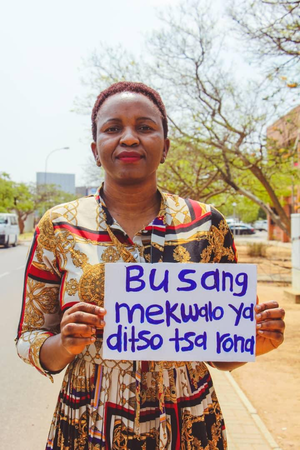 Busang
mekwalo ya
ditso tsa rona